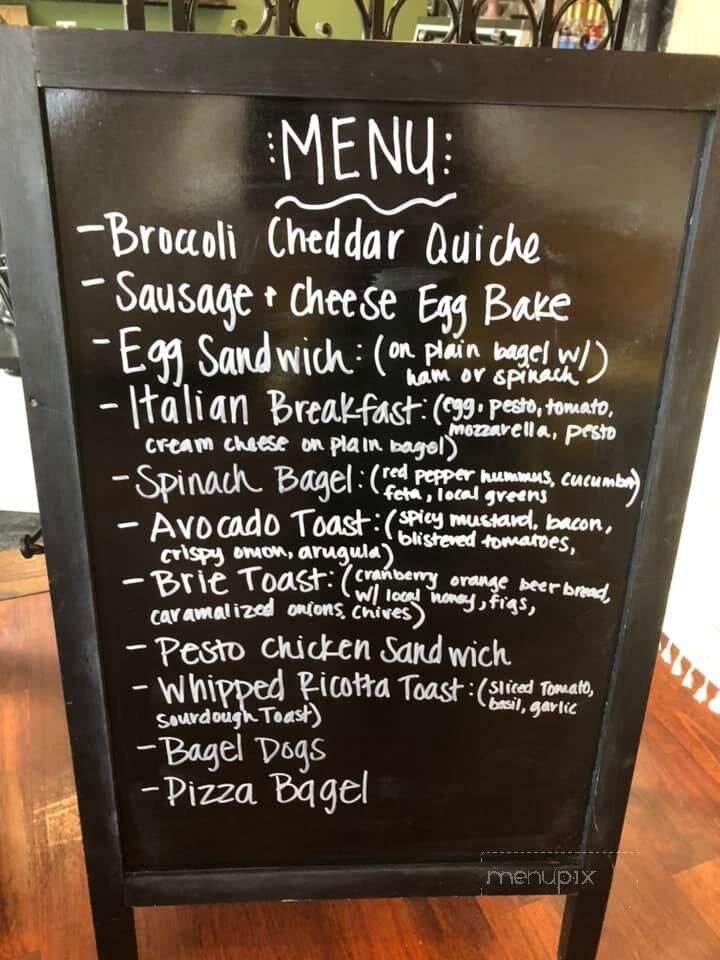 MENU
- Broccoli Cheddar Quiche
- Sausage + Cheese Egg Bake
- Egg Sandwich: (on plain bagel w/
ham or spinach)
- Italian Breakfast: (egg, pesto, tomato,
mozzarella, pesto
cream cheese on plain bagel)
- Spinach Bagel: (red pepper hummus, cucumber
feta, local greens)
- Avocado Toast: (spicy mustard, bacon,
blistered tomatoes,
crispy onion, arugula)
- Brie Toast: (cranberry orange beer bread,
w/ local honey, figs,
caramalized onions, chives)
- Pesto Chicken Sandwich
- Whipped Ricotta Toast: (sliced Tomato,
basil, garlic
sourdough Toast)
- Bagel Dogs
- Pizza Bagel
menupix